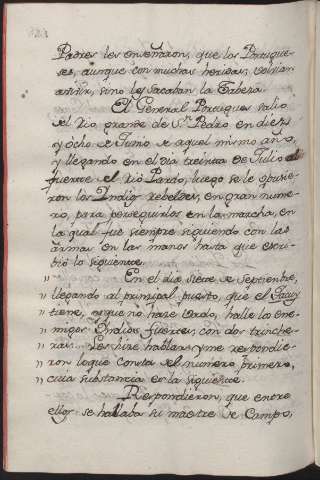 Padres les enseñaron, que los Portugue-
ses, aunque con muchas heridas, solvian
a vivir, sino les sacaban la Cabeza.
El General Portugues salio
del Rio grande de Sn. Pedro en diez
y ôcho de Junio de aquel mismo año,
y llegando en el dia treinta de Julio al
fuerte del Rio Pardo, luego se le opusie-
ron los Indios rebeldes, en gran nume-
ro, para perseguirlos en la marcha, en
la qual fue siempre siguiendo con las
armas en las manos hasta que escri-
bió lo siguiente.
" En el dia siete de Septiembre,
" llegando al principal puesto, que el Jacuy
" tiene, a que no hace vado, halle los ene-
" migos Indios fuertes, con dos trinche-
" ras. Les hize hablar, y me respondie-
" ron lo que consta del numero primero,
" cuia substancia es la siguiente.
Respondieron, que entre
ellos se hallaba su maestre de Campo,